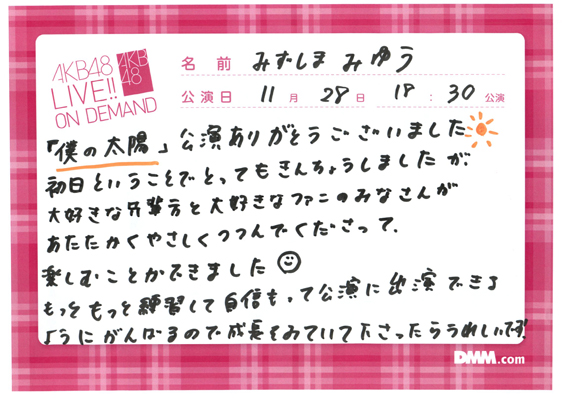 AKB48
LIVE!!
ON DEMAND
AKB
48
名前 みずしま みゆう
公演日 11月 28日 18:30公演
「僕の太陽」公演ありがとうございました
初日ということでとってもきんちょうしましたが、
大好きな先輩方と大好きなファンのみなさんが
あたたかくやさしくつつんでくださって、
楽しむことができました
もっともっと練習して自信もって公演に出演できる
ようにがんばるので成長をみていて下さったらうれしいです。
DMM.com